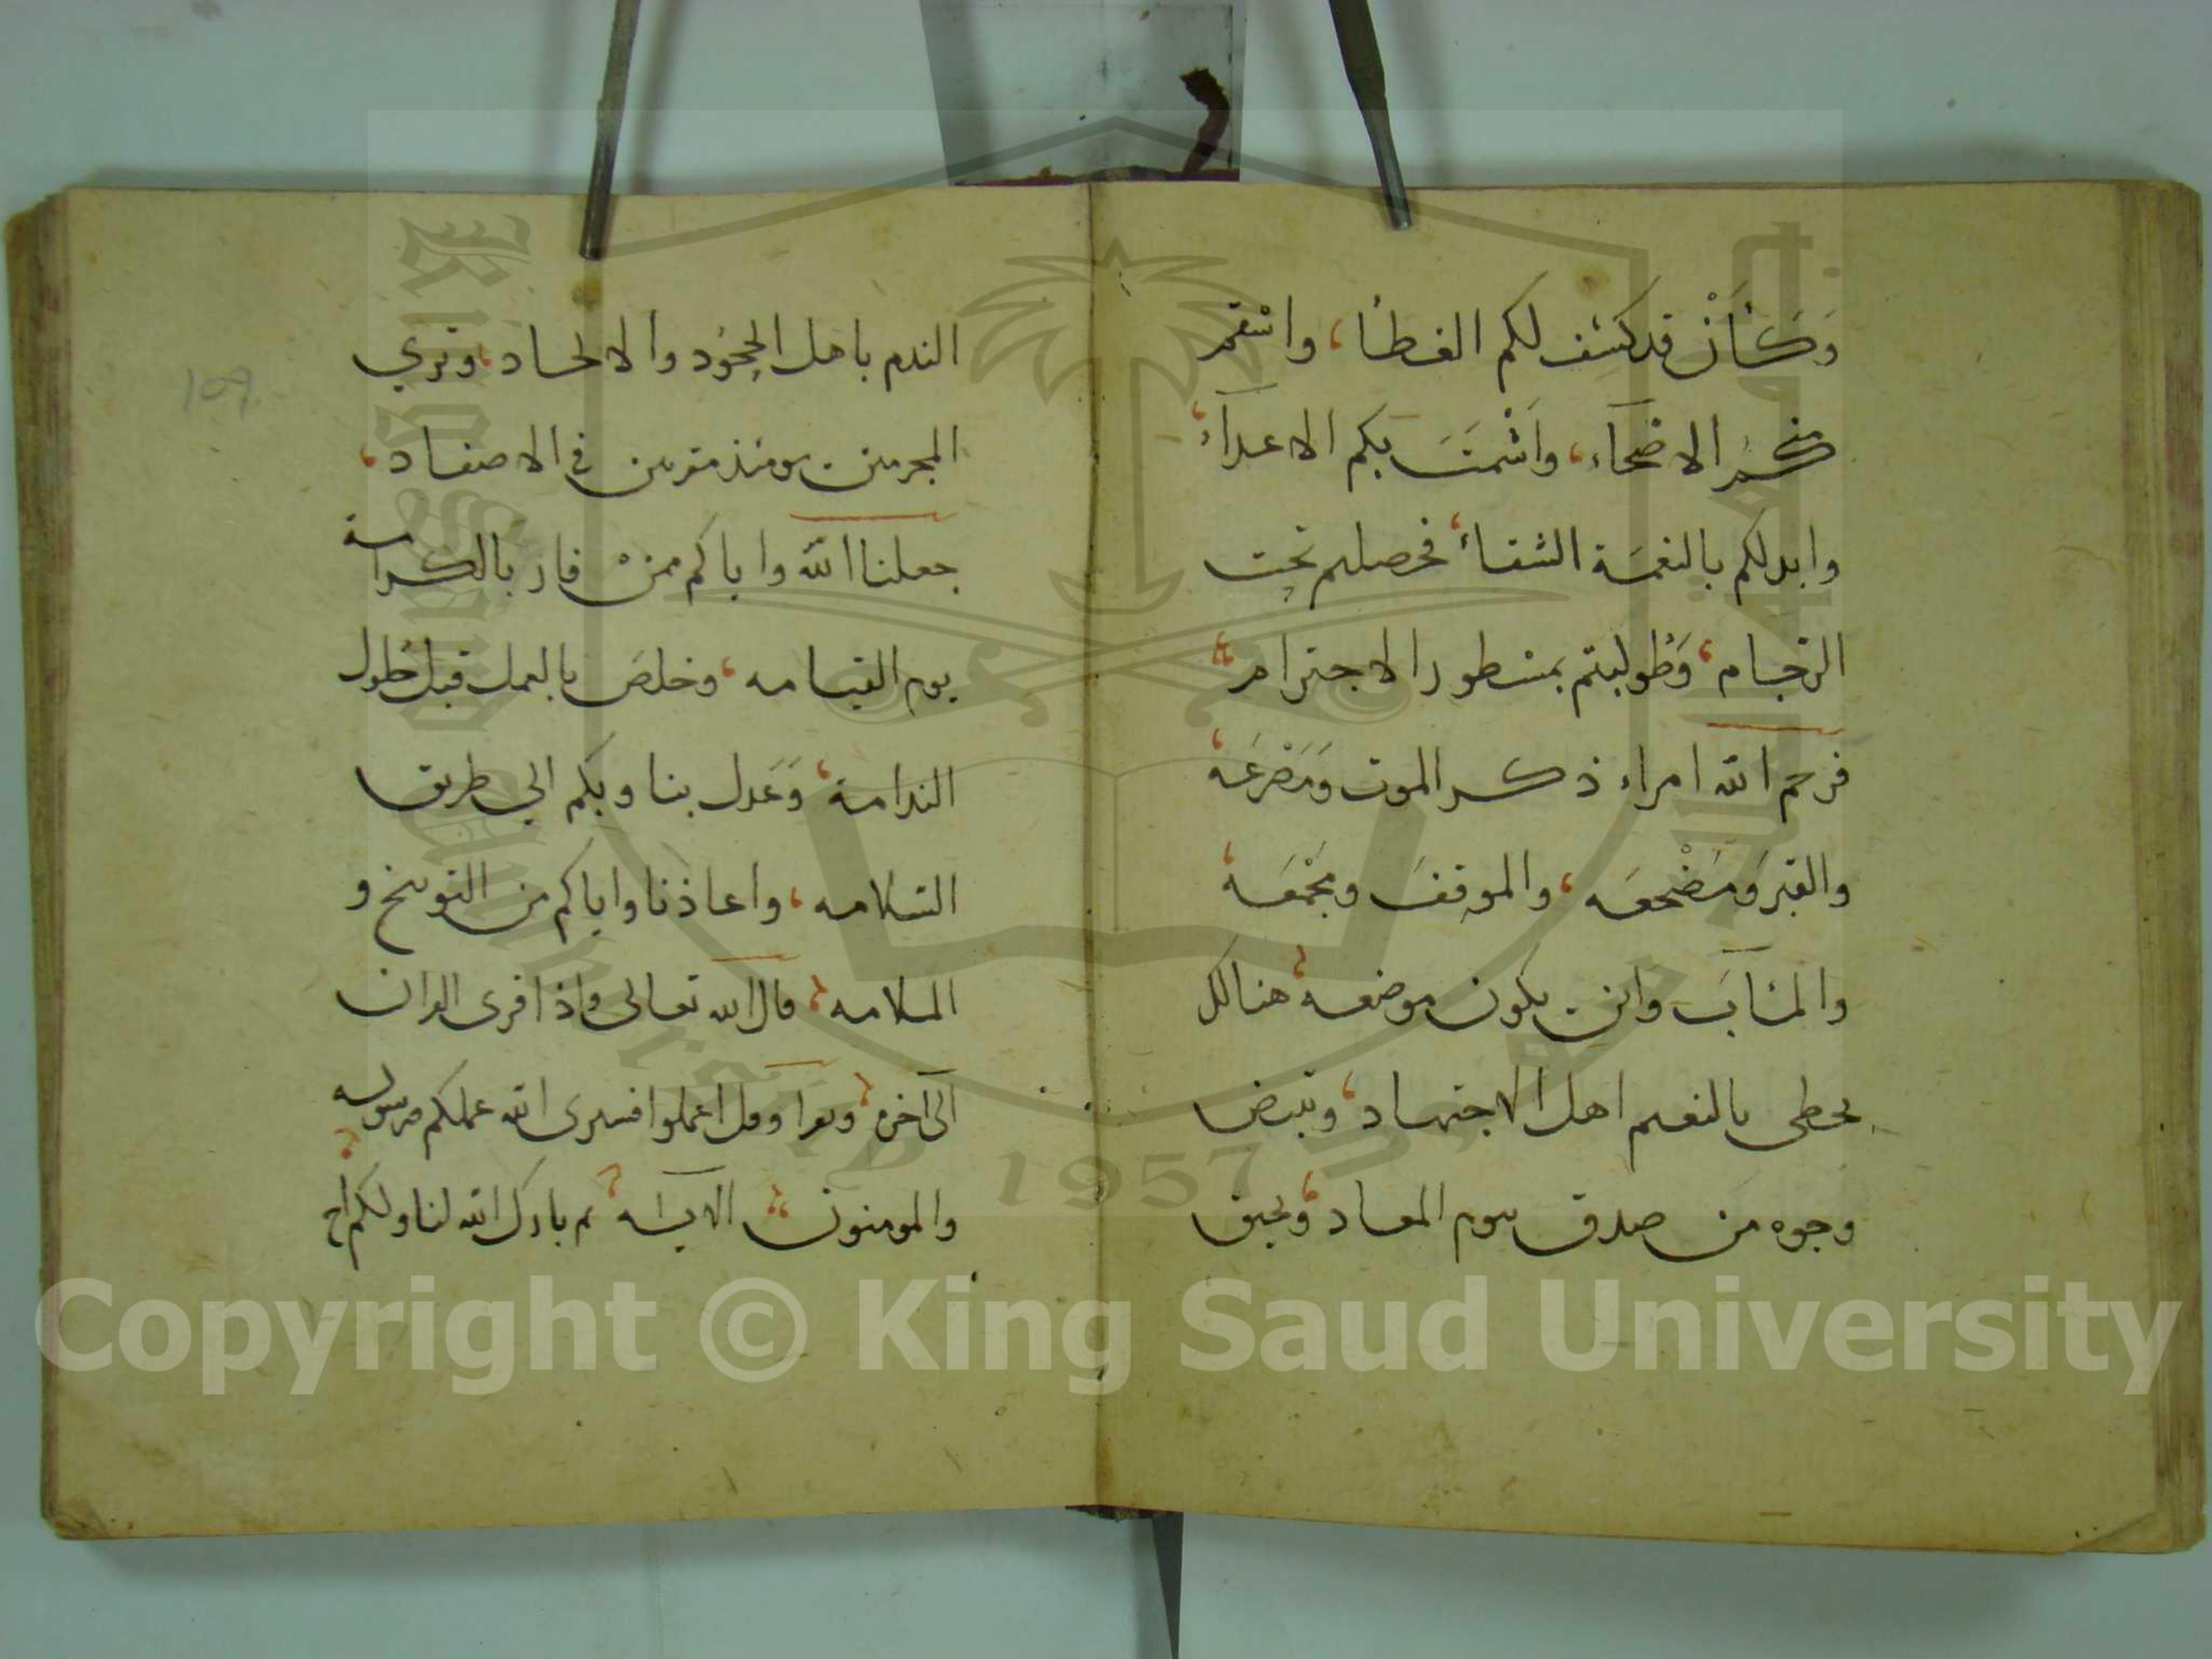 وَكَأَنْ قد كشف لكم الغطا، وانتقم
منكم الاضحآء، واَشْمَتَ بكم الاعدآء،
وابدلكم بالنعمَة الشقاء، فحصلتم تحت
الرّجام، وَطُولبتم بمسطور الاجترام
فرحم الله امراء ذكر الموت وَمَصْرَعَه،
والقبرَ وَمَضْجعَه، والموقفَ ومَجْمَعَه،
والمئابَ واين يكون موضعه، هنالك
يحظى بالنعيم اهل الاجتهاد، وتبيض
وجوه من صدق يوم المعاد، ويحيق
الندم باهل الجحُود والالحاد، وتري
المجرمين يومئذ مقرنين في الاصفاد،
جعلنا الله واياكم ممنْ فاز بالكرامة
يوم القيامه، وخلصَ بالعمل قبل حُلول
الندامة، وَعَدل بنا وبكم الي طريق
السّلامه، واعاذنا واياكم من التوبيخ و
الملامه، قال الله تعالى واذا قرى القران
الى اخره، وقل اعملوا فسيرى الله عملكم ورسوله
والمومنون الآيـه، ثم بارك الله لنا ولكم الخ
109
Copyright © King Saud University
King Saud University
1957